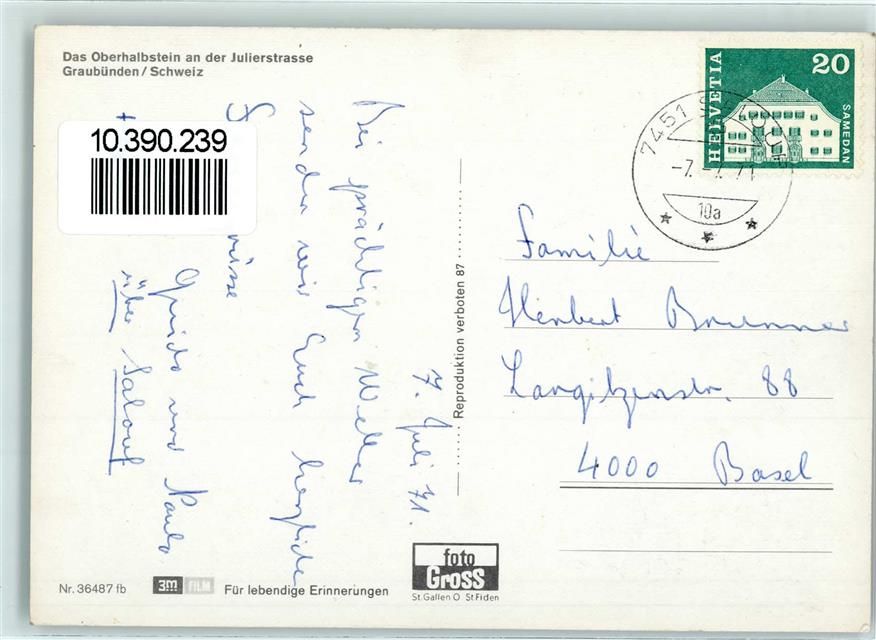 Das Oberhalbstein an der Julierstrasse
Graubünden / Schweiz
10.390.239
7. Juli 71.
Bei prächtigem Wetter
senden wir Euch herzliche
Grüsse
Guido und Paula
über Salouf
Reproduktion verboten 87
HELVETIA
20
SAMEDAN
7451 SALOUF
-7.-7.71
10a
Familie
Herbert Brunner
Langitzenstr. 88
4000 Basel
Nr. 36487 fb
3m FILM
Für lebendige Erinnerungen
foto
Gross
St. Gallen O St Fiden